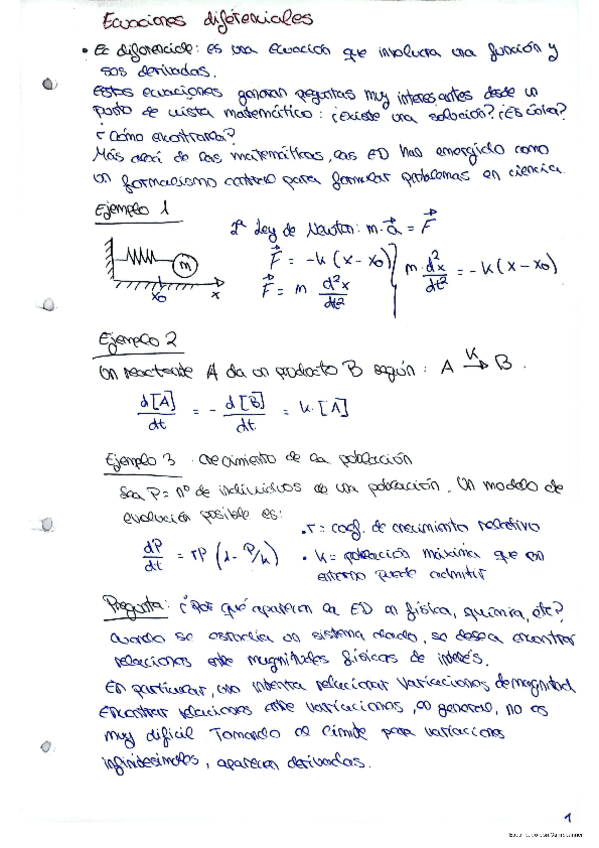 Ecuaciones diferenciales
• Ec diferenciale: es una ecuación que involucra una función y
sus derivadas.
Estas ecuaciones generan preguntas muy interesantes desde un
punto de vista matemático: ¿existe una solución? ¿Es única?
¿Cómo encontrarla?
Más allá de las matemáticas, las ED han emergido como
un formalismo para formular problemas en ciencia.
Ejemplo 1
2ª Ley de Newton: m·a⃗ = F⃗
F⃗ = -k(x-x₀)
F⃗ = m·d²x/dt²
m·d²x/dt² = -k(x-x₀)
m
x₀
x
Ejemplo 2
Un reactante A da un producto B según: A →ᴷ B.
d[A]/dt = - d[B]/dt = k·[A]
Ejemplo 3 · crecimiento de la población
Sea P = nº de individuos de una población. Un modelo de
evolución posible es:
• r = coef. de crecimiento relativo
dP/dt = rP(1-P/k)
• k = población máxima que en
entorno puede admitir
Pregunta: ¿Por qué aparecen la ED en física, química, etc?
cuando se estudia un sistema dado, se desea encontrar
relaciones entre magnitudes físicas de interés.
En particular, uno intenta relacionar variaciones de magnitud
Encontrar relaciones entre variaciones, en general, no es
muy dificil Tomando el límite para variaciones
infinitesimales, aparecen derivadas.
1